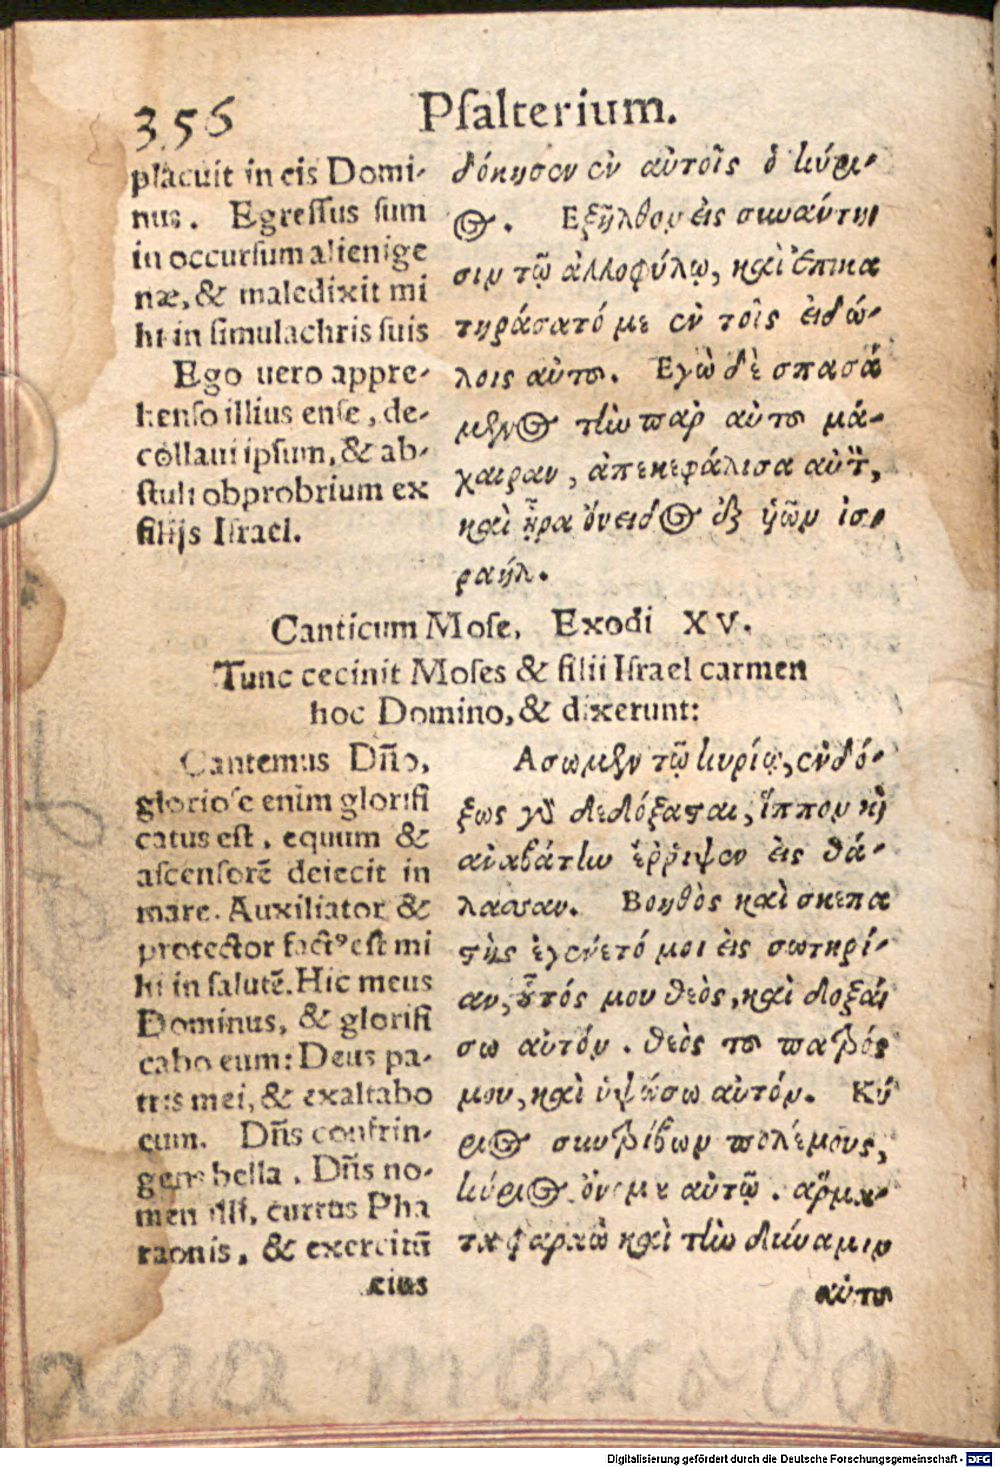 356 Pſalterium.
placuit in eis Domi-
nus. Egreſſus ſum
in occurſum alienige
næ, & maledixit mi
hi in ſimulachris ſuis
Ego uero appre-
henſo illius enſe, de-
collaui ipſum, & ab-
ſtuli obprobrium ex
filijs Iſrael.
δόκησεν ἐν αὐτοῖς ὁ κύρι-
ος. Εξῆλθον εἰς συνάντη
σιν τῷ ἀλλοφύλῳ, καὶ ἐπικα
τηράσατό με ἐν τοῖς εἰδώ-
λοις αὐτοῦ. Εγὼ δὲ σπασά
μενος τὴν παρ αὐτοῦ μά-
χαιραν, ἀπεκεφάλισα αὐτὸν,
καὶ ἦρα ὄνειδος ἐξ ὑῶν ἰσ-
ραήλ.
Canticum Moſe, Exodi XV.
Tunc cecinit Moſes & filii Iſrael carmen
hoc Domino, & dixerunt:
Cantemus Dño,
glorioſe enim glorifi
catus eſt, equum &
aſcenſorē deiecit in
mare. Auxiliator &
protector factꝰ eſt mi
hi in ſalutē. Hic meus
Dominus, & glorifi
cabo eum: Deus pa-
tris mei, & exaltabo
eum. Dñs confrin-
gens bella, Dñs no-
men illi, currus Pha
raonis, & exercitū
eius
Ασωμεν τῷ κυρίῳ, ἐνδό-
ξως γὰρ δεδόξασαι, ἵππον καὶ
ἀναβάτην ἔῤῥιψεν εἰς θά-
λασσαν. Βοηθὸς καὶ σκεπα
στὴς ἐγένετό μοι εἰς σωτηρί-
αν, οὗτός μου θεὸς, καὶ δοξά
σω αὐτόν. θεὸς τοῦ πατρός
μου, καὶ ὑψώσω αὐτόν. Κύ
ριος συντρίβων πολέμους,
κύριος ὄνομα αὐτῷ. ἅρμα-
τα φαραὼ καὶ τὴν δύναμιν
αὐτοῦ
Digitalisierung gefördert durch die Deutsche Forschungsgemeinschaft - DFG